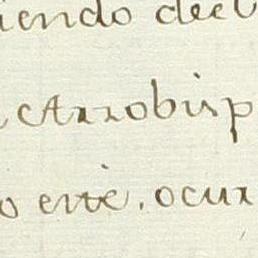 iendo decl
Arzobisp
o erre. ocur